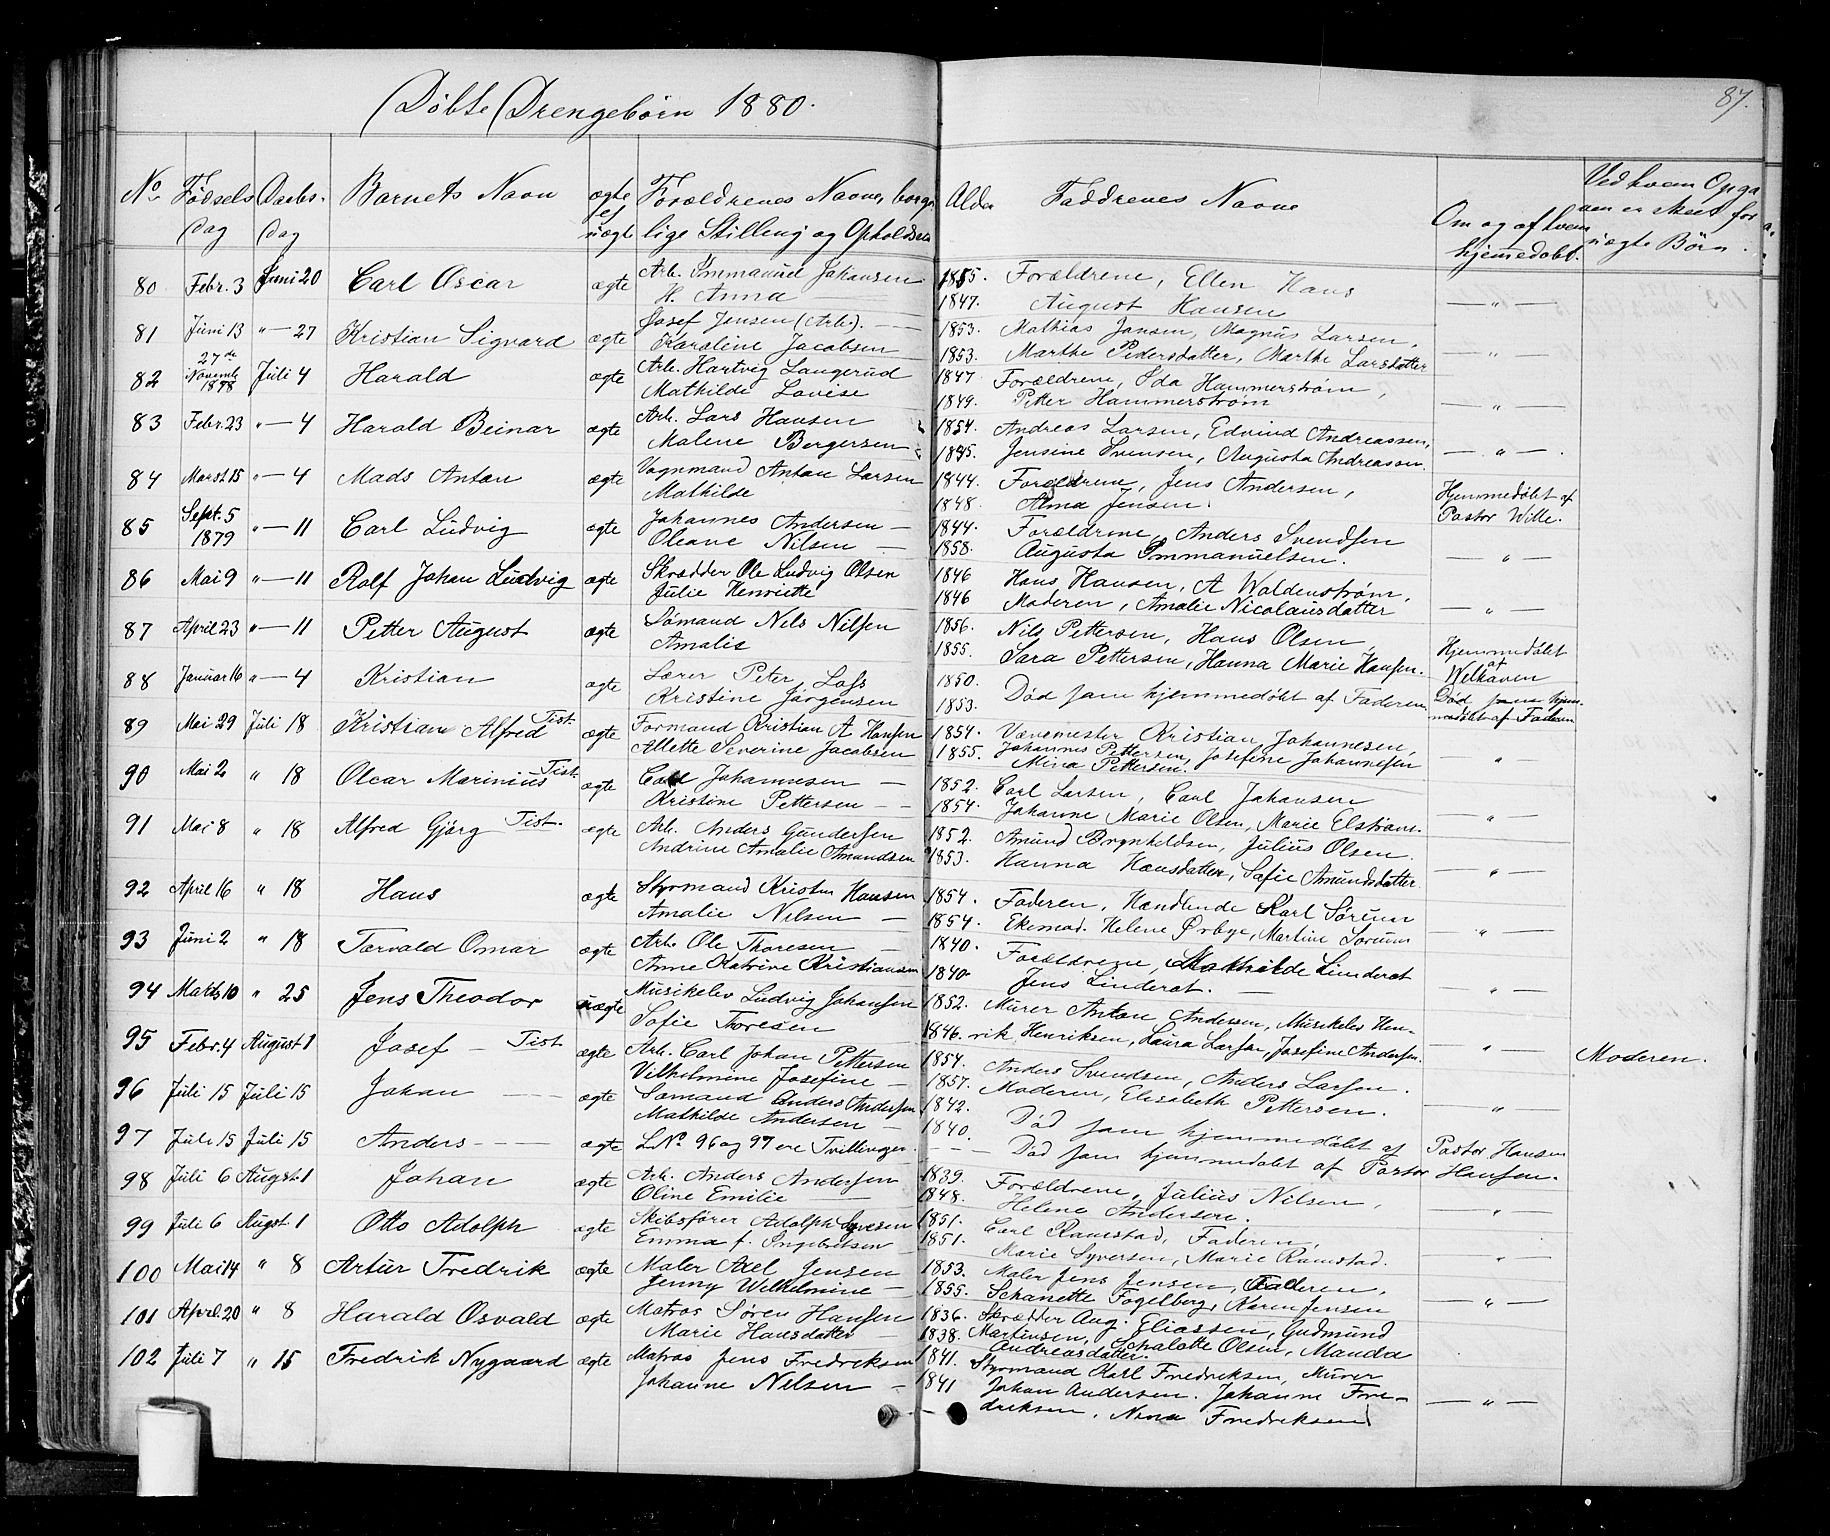 Døbte Drengebørn 1880.
87.
No Fødsels Daabs- Barnets Navn ægte Forældrenes Navne, borger Alder Faddrenes Navne Om og af hvem Ved hvem Opga
dag dag ej uægt lige Stilling og Opholdsted hjemmedøbt. ven er skeet for
uægte Børn.
80 Febr. 3 Juni 20 Carl Oscar ægte Arb. Immanuel Johansen 1855. Forældrene, Ellen Hans
H. Anna — 1847. August Hansen — " —
81 Juni 13 " — 27 Kristian Sigvard ægte Josef Jensen (Arb.). — 1853. Mathias Jansen, Magnus Larsen,
Karoline Jacobsen 1853. Marthe Pedersdatter, Marthe Larsdatter — " —
82 27de Novemb 1878 Juli 4 Harald ægte Arb. Hartvig Langerud 1847. Forældrene, Ida Hammerstrøm,
Mathilde Lovise 1849. Petter Hammerstrøm — " —
83 Febr. 23 " — 4 Harald Beinar ægte Arb. Lars Hansen 1854. Andreas Larsen, Edvind Andreassen,
Malene Bergersen 1845. Jensine Svensen, Augusta Andreassen. — " — .
84 Marst 15 " — 4 Mads Anton ægte Vognmand Anton Larsen 1844. Forældrene, Jens Andersen, Hjemmedøbt af
Mathilde 1848. Alma Jensen. Pastor Wille.
85 Sept. 5 1879 " — 11 Carl Ludvig ægte Johannes Andersen — 1844. Forældrene, Anders Svendsen
Oleane Nilsen — 1858. Augusta Immanuelsen. — " —
86 Mai 9 " — 11 Rolf Johan Ludvig ægte Skrædder Ole Ludvig Olsen 1846 Hans Hansen, A Waldenstrøm,
Julie Henriette 1846 Moderen, Amalie Nicolausdatter — " —
87 April 23 " — 11 Petter August ægte Sømand Nels Nilsen 1856. Nils Pettersen, Hans Olsen, Hjemmedøbt
Amalie 1855. Sara Pettersen, Hanna Marie Hansen. af Welhaven
88 Januar 16 " — 4 Kristian ægte Lærer Peter Lass 1850. Død som hjemmedøbt af Faderen Død som hjem-
Kristine Jørgensen 1853. medøbt af Faderen
89 Mai 29 Juli 18 Kristian Alfred Tist. ægte Formand Kristian A Hansen 1854. Vævemester Kristian Johannesen,
Alette Severine Jacobsen 1855. Johannes Pettersen, Josefine Johannesen
Mina Pettersen. — " —
90 Mai 2 " 18 Olcar Marinius Tist. ægte Carl Johannesen — 1852. Carl Larsen, Carl Johansen
Kristine Pettersen — 1854. Johanne Marie Olsen, Marie Elstrøm. — " —
91 Mai 8 " 18 Alfred Gjørg Tist. ægte Arb. Anders Gundersen 1852. Amund Brynhildsen, Julius Olsen.
Andrine Amalie Amundsen 1853. Hanna Hansdatter, Sofie Amundsdatter. — " —
92 April 16 " 18 Hans ægte Styrmand Kristen Hansen 1854. Faderen, Handlende Karl Sørum
Amalie Nilsen — 1854. Ekemad. Helene Ørbye, Martine Sørum — " —
93 Juni 2 " 18 Torvald Omar ægte Arb. Ole Thoresen — 1840. Forældrene, Mathilde Linderot
Anne Katrine Kristiansen 1840. Jens Linderot. — — " —
94 Marts 10 " 25 Jens Theodor uægte Musikelev Ludvig Johansen 1852. Murer Anton Andersen, Musikelev Hen-
Sofie Thoresen 1846. rik Henriksen, Laura Larsen, Josefine Andersen. — " — Moderen.
95 Febr. 4 August 1 Josef — Tist ægte Arb. Carl Johan Pettersen 1854. Anders Svendsen, Anders Larsen.
Vilhelmine Josefine — 1857. Moderen, Elisabeth Pettersen. — " —
96 Juli 15 Juli 15 Johan — ægte Sømand Anders Andersen 1842. Død som hjemmedøbt af Pastor Hansen
Mathilde Andersen — 1840.
97 Juli 15 Juli 15 Anders — ægte LNo 96 og 97 ere Tvillinger. — Død som hjemmedøbt af Pastor Hansen.
98 Juli 6 Augst. 1 Johan ægte Arb. Anders Andersen 1839. Forældrene, Julius Nilsen,
Oline Emilie — 1848. Helene Andersen. — " —
99 Juli 6 Augst. 1 Otto Adolph ægte Skibsfører Adolph Syvesen 1851. Carl Ramstad, Faderen,
Emma f. Ingebretsen 1851. Marie Syversen, Marie Ramstad. "
100 Mai 14 " 8 Artur Fredrik ægte Maler Axel Jensen 1853. Maler Jens Jensen, Faderen,
Jenny Wilhelmine — 1855. Schanette Fogelberg, Karen Jensen — " —
101 April. 20 " 8 Harald Osvald ægte Matros Søren Hansen 1836. Skrædder Aug. Eliassen, Gudmund
Marie Hansdatter — 1838. Martinsen, Schalotte Olsen, Manda
Andreasdatter.
102 Juli 7 " 15 Fredrik Nygaard ægte Matros Jens Fredriksen 1841. Styrmand Karl Fredriksen, Murer
Johanne Nilsen — 1841 Johan Andersen. Johanne Fre-
driksen, Nina Fredriksen — " —